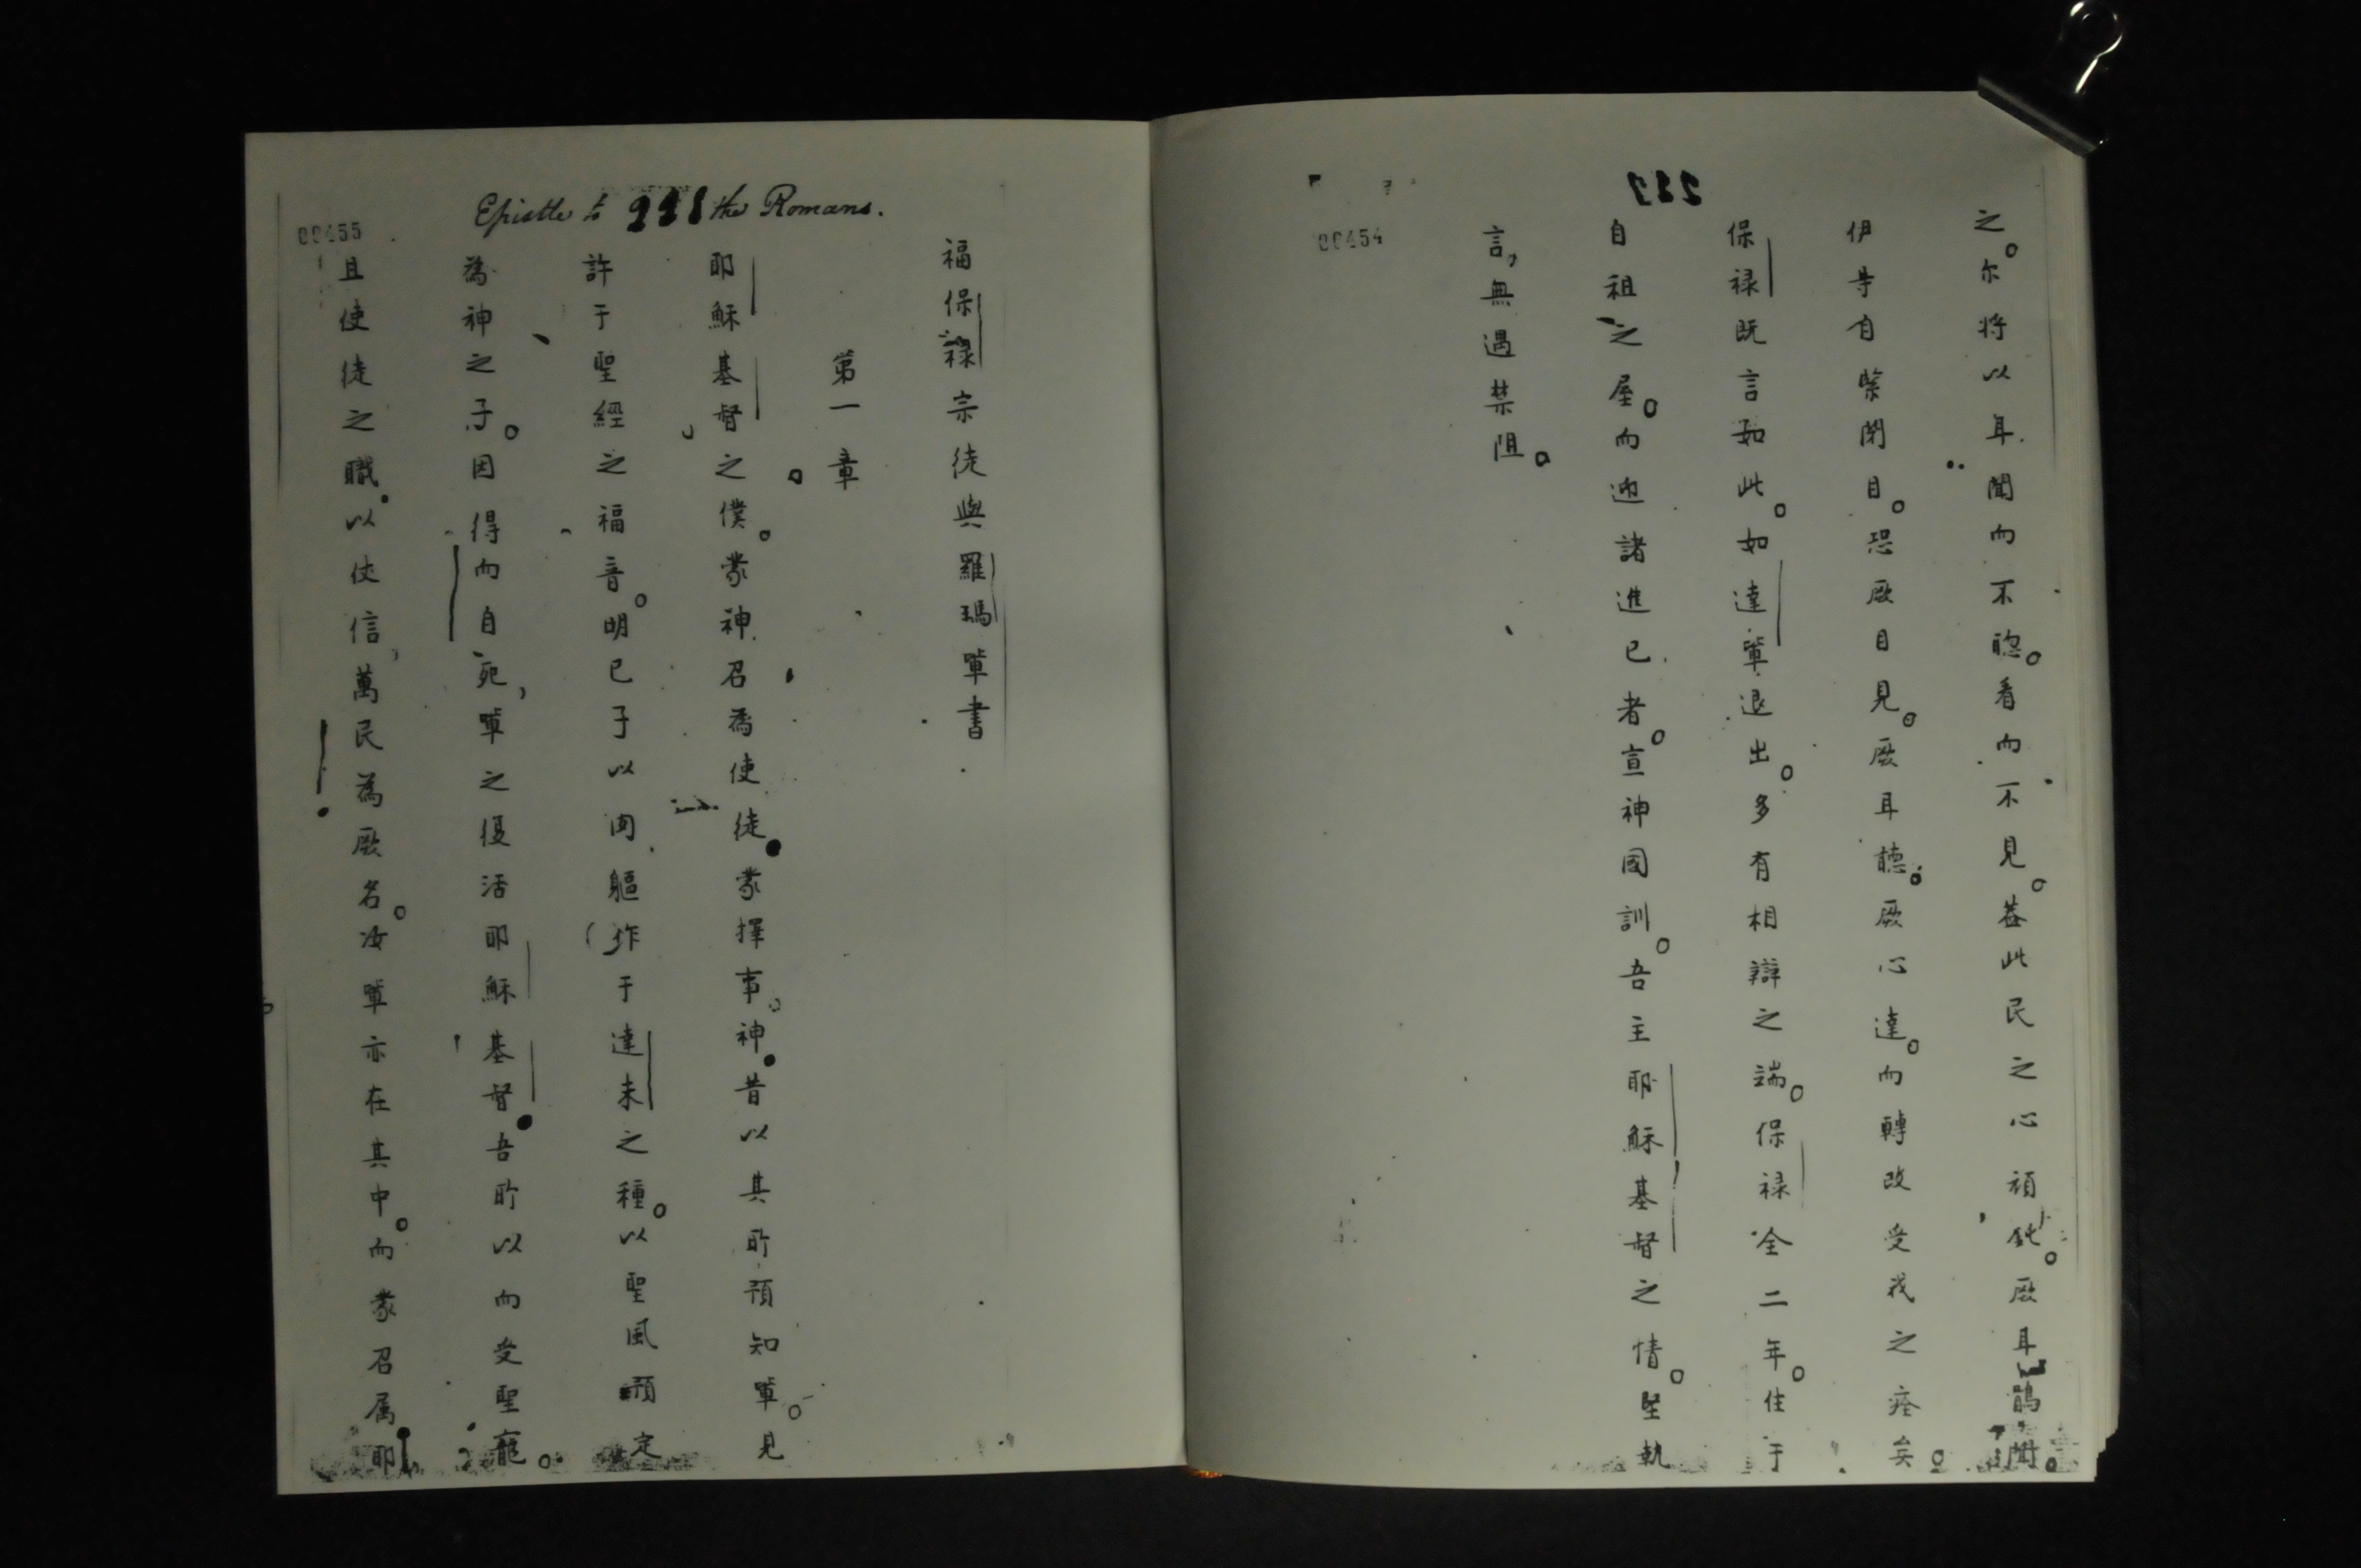 227
00454
之。尔将以耳聞而不聰。看而不見。葢此民之心頑鈍。厥耳聞。
伊等自緊閉目。恐厥目見。厥耳聽。厥心達。而轉改受我之痊矣。
保禄既言如此。如達輩退出。多有相辯之端。保禄全二年。住于
自祖之屋。而迎諸進已者。宣神國訓。吾主耶穌基督之情。堅執
言，無遇禁阻。
Epistle to 228 the Romans.
00455
福保禄宗徒與羅瑪輩書
第一章
耶穌基督之僕。蒙神召為使徒。蒙擇事。神昔以其所預知輩。見
許于聖經之福音。明已子以肉軀作于達未之種。以聖風預定
為神之子。因得而自死，輩之復活耶穌基督。吾所以而受聖寵。
且使徒之職。以使信，萬民為厥名。汝輩亦在其中。而蒙召属耶